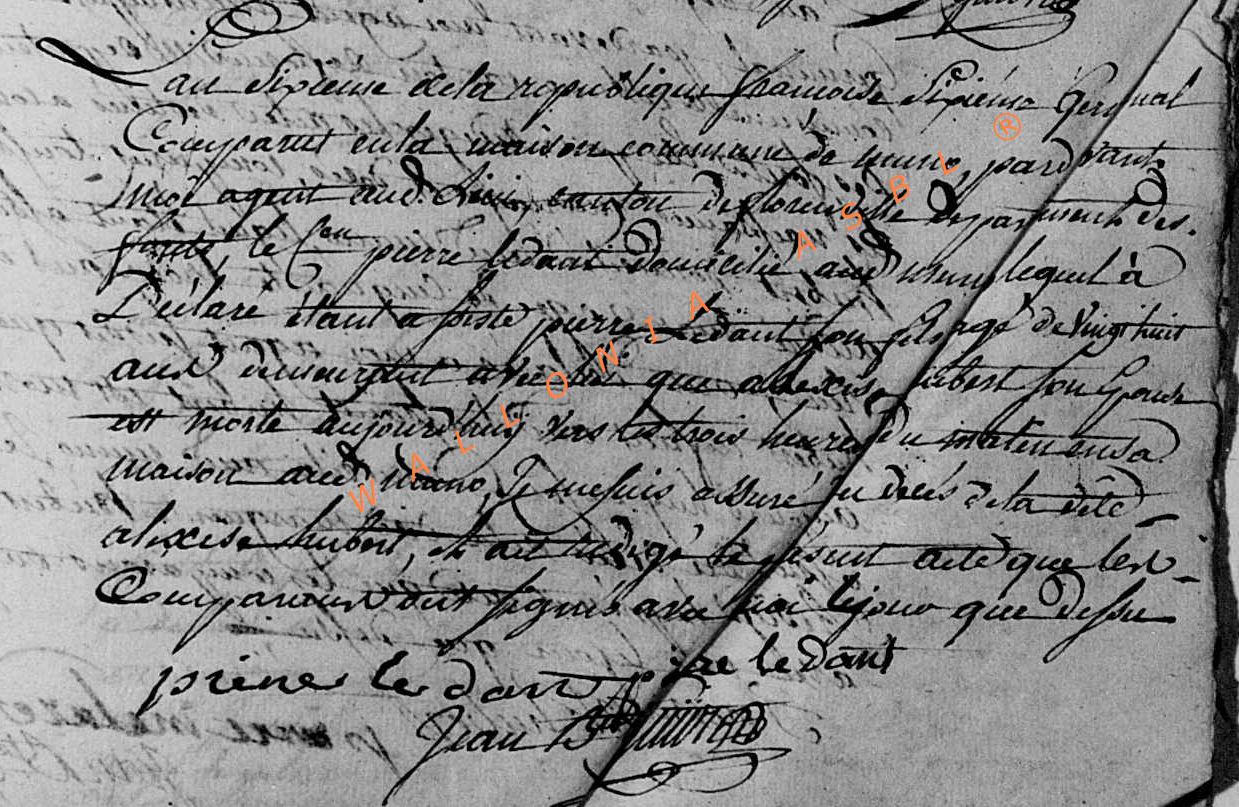 L'an sixieme dela republique francoise sixieme germinal
Comparut enla maison commune de muno, pardevant
moi agent aud. lieu, canton de florenville departement des
forets, le Cen pierre ledant domicilié aud muno lequel à
Déclaré étant assisté pierre Ledant son fils agé de vingt huit
ans demeurant avec lui que alexise hubert son Epouse
est morte aujourd'huy vers les trois heures du matin ensa
maison aud muno, Je mesuis assuré du decés dela dite
alixise hubert, et ait redigé le présent acte que les
Comparans ont signés avec moi lejour que dessu
pierre le dant pierre le dant
Jean Bte
WALLONIA ASBL ®